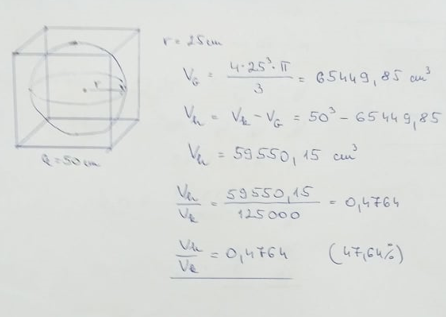 r = 25 cm
V_G = 4·25³·π / 3 = 65449,85 cm³
V_n = V_k - V_G = 50³ - 65449,85
V_n = 59550,15 cm³
V_n / V_k = 59550,15 / 125000 = 0,4764
V_n / V_k = 0,4764 (47,64%)
r
a = 50 cm